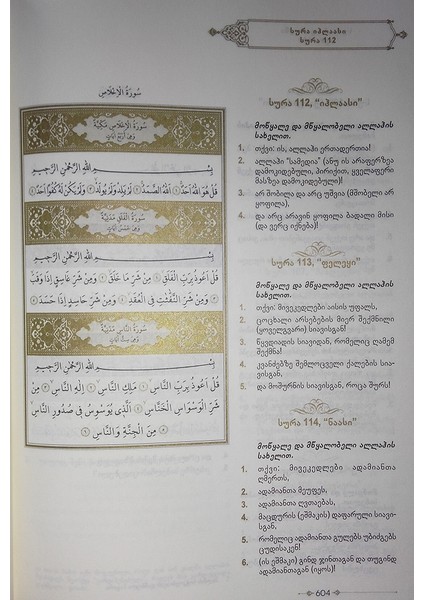 სურა იჰლაასი
სურა 112
سُورَةُ الْإِخْلَاصِ
سُورَةُ الْإِخْلَاصِ مَكِّيَّةٌ
وَهِيَ أَرْبَعُ آيَاتٍ
بِسْمِ اللهِ الرَّحْمٰنِ الرَّحِيمِ
قُلْ هُوَ اللهُ أَحَدٌ ١ اَللهُ الصَّمَدُ ٢ لَمْ يَلِدْ وَلَمْ يُولَدْ ٣ وَلَمْ يَكُنْ لَهُ كُفُوًا أَحَدٌ ٤
سُورَةُ الْفَلَقِ مَدَنِيَّةٌ
وَهِيَ خَمْسُ آيَاتٍ
بِسْمِ اللهِ الرَّحْمٰنِ الرَّحِيمِ
قُلْ أَعُوذُ بِرَبِّ الْفَلَقِ ١ مِنْ شَرِّ مَا خَلَقَ ٢ وَمِنْ شَرِّ غَاسِقٍ إِذَا وَقَبَ
٣ وَمِنْ شَرِّ النَّفَّٰثٰتِ فِي الْعُقَدِ ٤ وَمِنْ شَرِّ حَاسِدٍ إِذَا حَسَدَ ٥
سُورَةُ النَّاسِ مَدَنِيَّةٌ
وَهِيَ سِتُّ آيَاتٍ
بِسْمِ اللهِ الرَّحْمٰنِ الرَّحِيمِ
قُلْ أَعُوذُ بِرَبِّ النَّاسِ ١ مَلِكِ النَّاسِ ٢ إِلٰهِ النَّاسِ ٣ مِنْ
شَرِّ الْوَسْوَاسِ الْخَنَّاسِ ٤ اَلَّذِي يُوَسْوِسُ فِي صُدُورِ النَّاسِ
٥ مِنَ الْجِنَّةِ وَالنَّاسِ ٦
სურა 112, “იჰლაასი”
მოწყალე და მწყალობელი ალლაჰის
სახელით.
1. თქვი: ის, ალლაჰი ერთადერთია!
2. ალლაჰი “სამედია” (ანუ ის არაფერზეა
დამოკიდებული, პირიქით, ყველაფერი
მასზეა დამოკიდებული)!
3. არ შობილა და არც უშვია (მშობელი არ
ყოფილა),
4. და არც არავინ ყოფილა ბადალი მისი
(და ვერც იქნება)!
სურა 113, “ფელეყი”
მოწყალე და მწყალობელი ალლაჰის
სახელით.
1. თქვი: მივეკედლები აისის უფალს,
2. ცოცხალი არსებების მიერ შექმნილი
(ყოველგვარი) სიავისგან!
3. წყვდიადის სიავიდან, რომელიც ღამემ
შექმნა!
4. კვანძებზე შემლოცველი ქალების სიავ-
ისგან,
5. და მოშურნის სიავისგან, როცა შურს!
სურა 114, “ნაასი”
მოწყალე და მწყალობელი ალლაჰის
სახელით.
1. თქვი: მივეკედლები ადამიანთა
ღმერთს,
2. ადამიანთა მეუფეს,
3. ადამიანთა ღვთაებას,
4. მაცდურის (ეშმაკის) დაფარული სიავი-
სგან,
5. რომელიც ადამიანთა გულებს უბიძგებს
ცუდისაკენ!
6. (ის ეშმაკი) გინდ ჯინთაგან და თუგინდ
ადამიანთაგან (იყოს)!
604